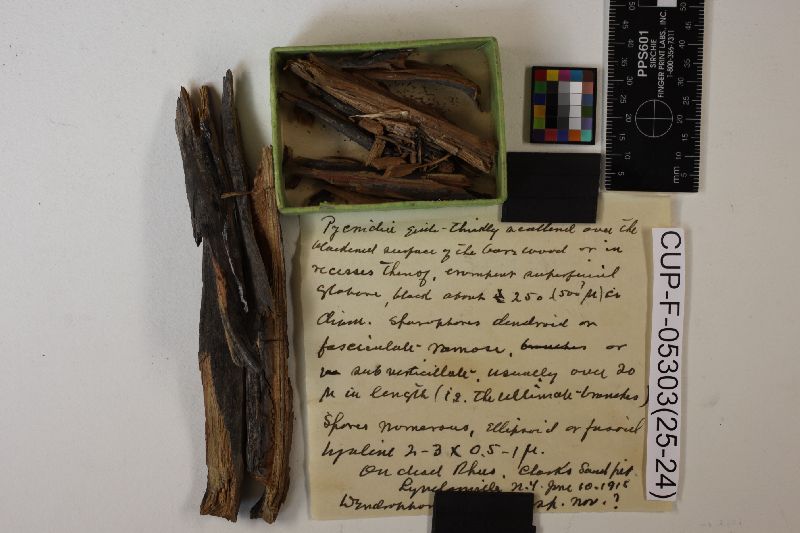 PPS601
SIRCHIE
FINGER PRINT LABS., INC.
1-800-356-7311
mm
CUP-F-05303(25-24)
Pycnidia quite thickly scattered over the
blackened surface of the bare wood or in
recesses thereof, erumpent superficial
globose, black about 250 (500? µ) in
diam. Sporophores dendroid or
fasciculate ramose, branches or
sub verticillate, usually over 20
µ in length (i.e. the ultimate branches)
Spores numerous, ellipsoid or fusoid
hyaline 2-3 X 0.5-1 µ.
On dead Rhus. Clark's Sand pit.
Lyndonville N.Y. June 10. 1918
sp. nov. ?